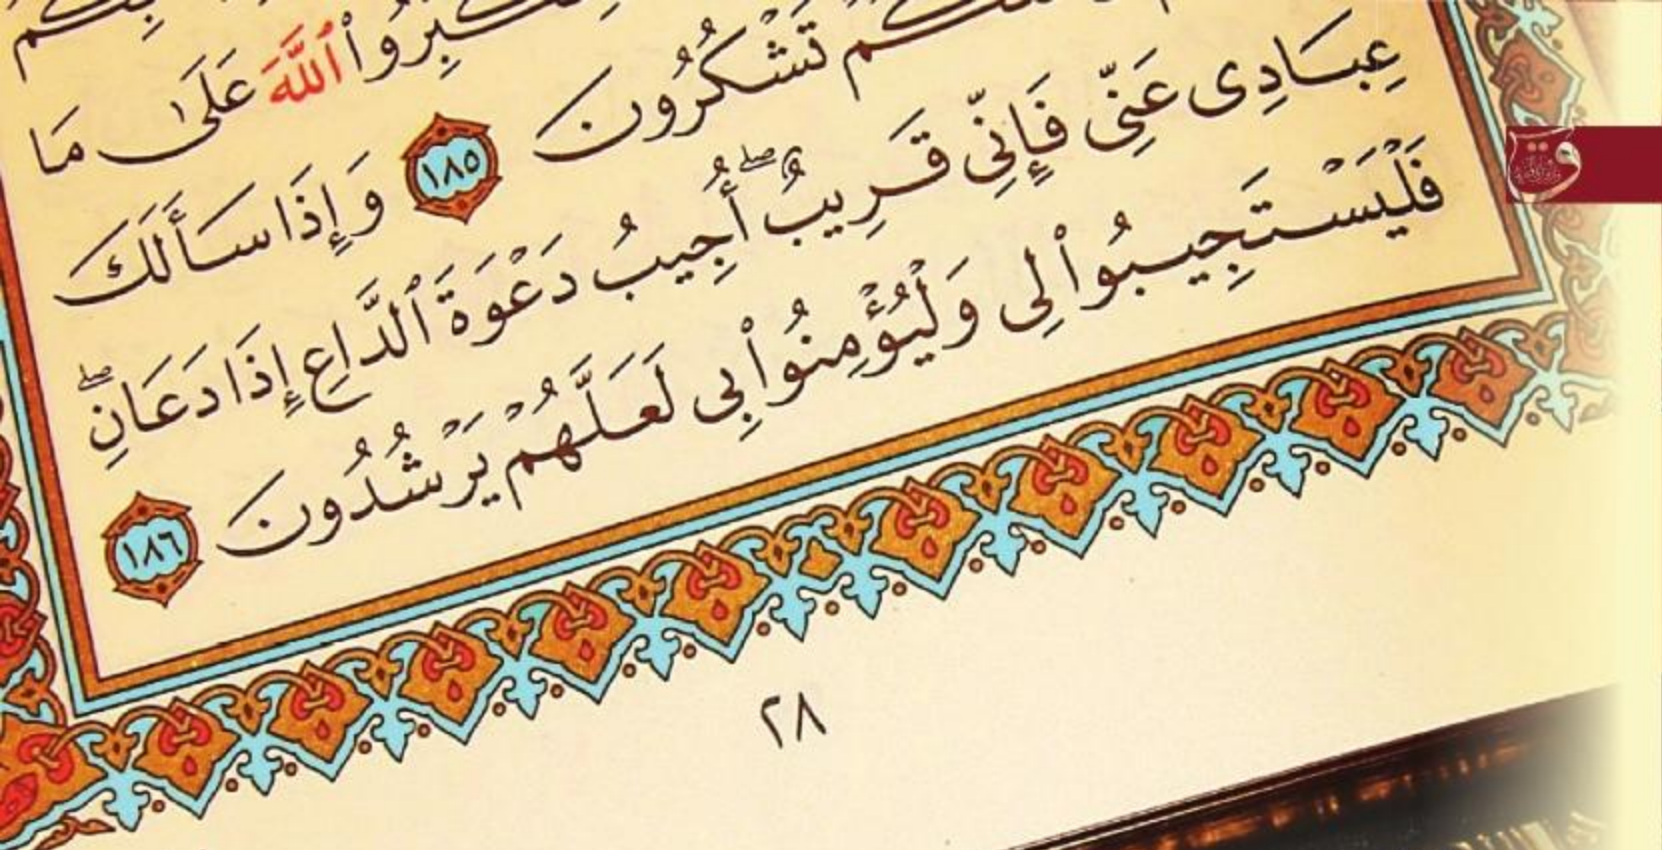 ـكَبِّرُوا۟ ٱللَّهَ عَلَىٰ مَا
ـكُمْ تَشْكُرُونَ ١٨٥ وَإِذَا سَأَلَكَ
عِبَادِى عَنِّى فَإِنِّى قَرِيبٌ ۖ أُجِيبُ دَعْوَةَ ٱلدَّاعِ إِذَا دَعَانِ ۖ
فَلْيَسْتَجِيبُوا۟ لِى وَلْيُؤْمِنُوا۟ بِى لَعَلَّهُمْ يَرْشُدُونَ ١٨٦
٢٨